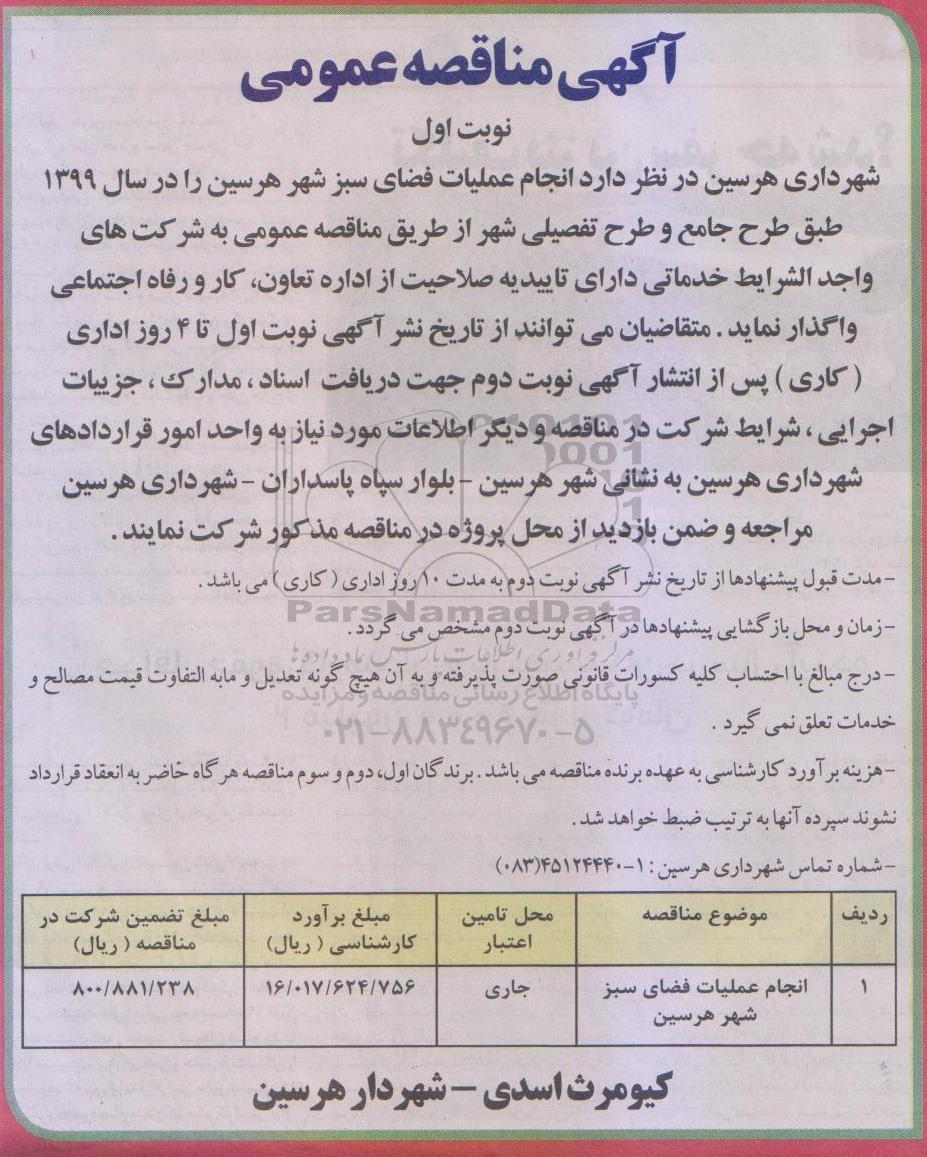 آگهی مناقصه عمومی
نوبت اول
شهرداری هرسین در نظر دارد انجام عملیات فضای سبز شهر هرسین را در سال ۱۳۹۹
طبق طرح جامع و طرح تفصیلی شهر از طریق مناقصه عمومی به شرکت های
واجد الشرایط خدماتی دارای تاییدیه صلاحیت از اداره تعاون، کار و رفاه اجتماعی
واگذار نماید . متقاضیان می توانند از تاریخ نشر آگهی نوبت اول تا ۴ روز اداری
( کاری ) پس از انتشار آگهی نوبت دوم جهت دریافت اسناد ، مدارک ، جزییات
اجرایی ، شرایط شرکت در مناقصه و دیگر اطلاعات مورد نیاز به واحد امور قراردادهای
شهرداری هرسین به نشانی شهر هرسین - بلوار سپاه پاسداران - شهرداری هرسین
مراجعه و ضمن بازدید از محل پروژه در مناقصه مذکور شرکت نمایند .
- مدت قبول پیشنهادها از تاریخ نشر آگهی نوبت دوم به مدت ۱۰ روز اداری ( کاری ) می باشد .
ParsNamadData
- زمان و محل بازگشایی پیشنهادها در آگهی نوبت دوم مشخص می گردد .
- درج مبالغ با احتساب کلیه کسورات قانونی صورت پذیرفته و به آن هیچ گونه تعدیل و مابه التفاوت قیمت مصالح و
پایگاه اطلاع رسانی مناقصه و مزایده
خدمات تعلق نمی گیرد .
۰۲۱-۸۸۳۴۹۶۷۰-۵
- هزینه برآورد کارشناسی به عهده برنده مناقصه می باشد . برندگان اول، دوم و سوم مناقصه هر گاه حاضر به انعقاد قرارداد
نشوند سپرده آنها به ترتیب ضبط خواهد شد .
- شماره تماس شهرداری هرسین : ۱-۴۵۱۲۴۴۴۰(۰۸۳)
ردیف موضوع مناقصه محل تامین اعتبار مبلغ برآورد کارشناسی ( ریال) مبلغ تضمین شرکت در مناقصه ( ریال)
۱ انجام عملیات فضای سبز شهر هرسین جاری ۱۶/۰۱۷/۶۲۴/۷۵۶ ۸۰۰/۸۸۱/۲۳۸
کیومرث اسدی – شهردار هرسین